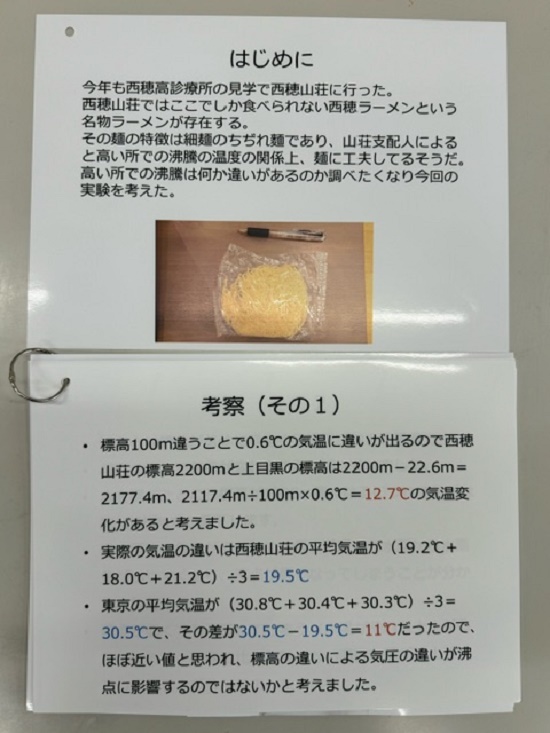 はじめに
今年も西穂高診療所の見学で西穂山荘に行った。
西穂山荘ではここでしか食べられない西穂ラーメンという
名物ラーメンが存在する。
その麺の特徴は細麺のちぢれ麺であり、山荘支配人による
と高い所での沸騰の温度の関係上、麺に工夫してるそうだ。
高い所での沸騰は何か違いがあるのか調べたくなり今回の
実験を考えた。
考察（その１）
・ 標高100m違うことで0.6℃の気温に違いが出るので西穂
山荘の標高2200mと上目黒の標高は2200m－22.6m＝
2177.4m、2117.4m÷100m×0.6℃＝12.7℃の気温変
化があると考えました。
・ 実際の気温の違いは西穂山荘の平均気温が（19.2℃＋
18.0℃＋21.2℃）÷3＝19.5℃
・ 東京の平均気温が（30.8℃＋30.4℃＋30.3℃）÷3＝
30.5℃で、その差が30.5℃－19.5℃＝11℃だったので、
ほぼ近い値と思われ、標高の違いによる気圧の違いが沸
点に影響するのではないかと考えました。